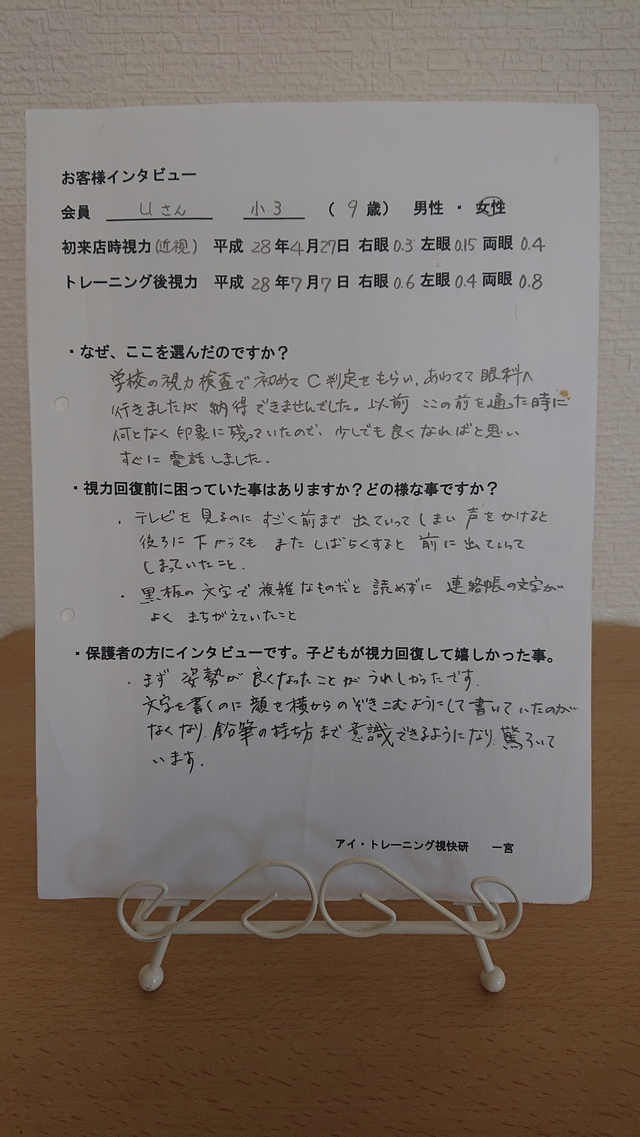 お客様インタビュー
会員 Uさん 小3 （ 9 歳） 男性 ・ 女性
初来店時視力(近視) 平成 28年4月27日 右眼0.3 左眼0.15 両眼 0.4
トレーニング後視力 平成 28年7月7日 右眼0.6 左眼0.4 両眼 0.8
・なぜ、ここを選んだのですか？
学校の視力検査で初めてC判定をもらい、あわてて眼科へ
行きましたが納得できませんでした。以前 ここの前を通った時に
何となく印象に残っていたので、少しでも良くなればと思い
すぐに電話しました。
・視力回復前に困っていた事はありますか？どの様な事ですか？
・テレビを見るのにすごく前まで出ていってしまい声をかけると
後ろに下がっても またしばらくすると前に出ていって
しまっていたこと。
・黒板の文字で複雑なものだと読めずに 連絡帳の文字が
よく まちがえていたこと
・保護者の方にインタビューです。子どもが視力回復して嬉しかった事。
・まず 姿勢が良くなったことがうれしかったです。
文字を書くのに顔を横からのぞきこむようにして書いていたのが
なくなり、鉛筆の持ち方まで意識できるようになり、驚ろいて
います。
アイ・トレーニング視快研 一宮